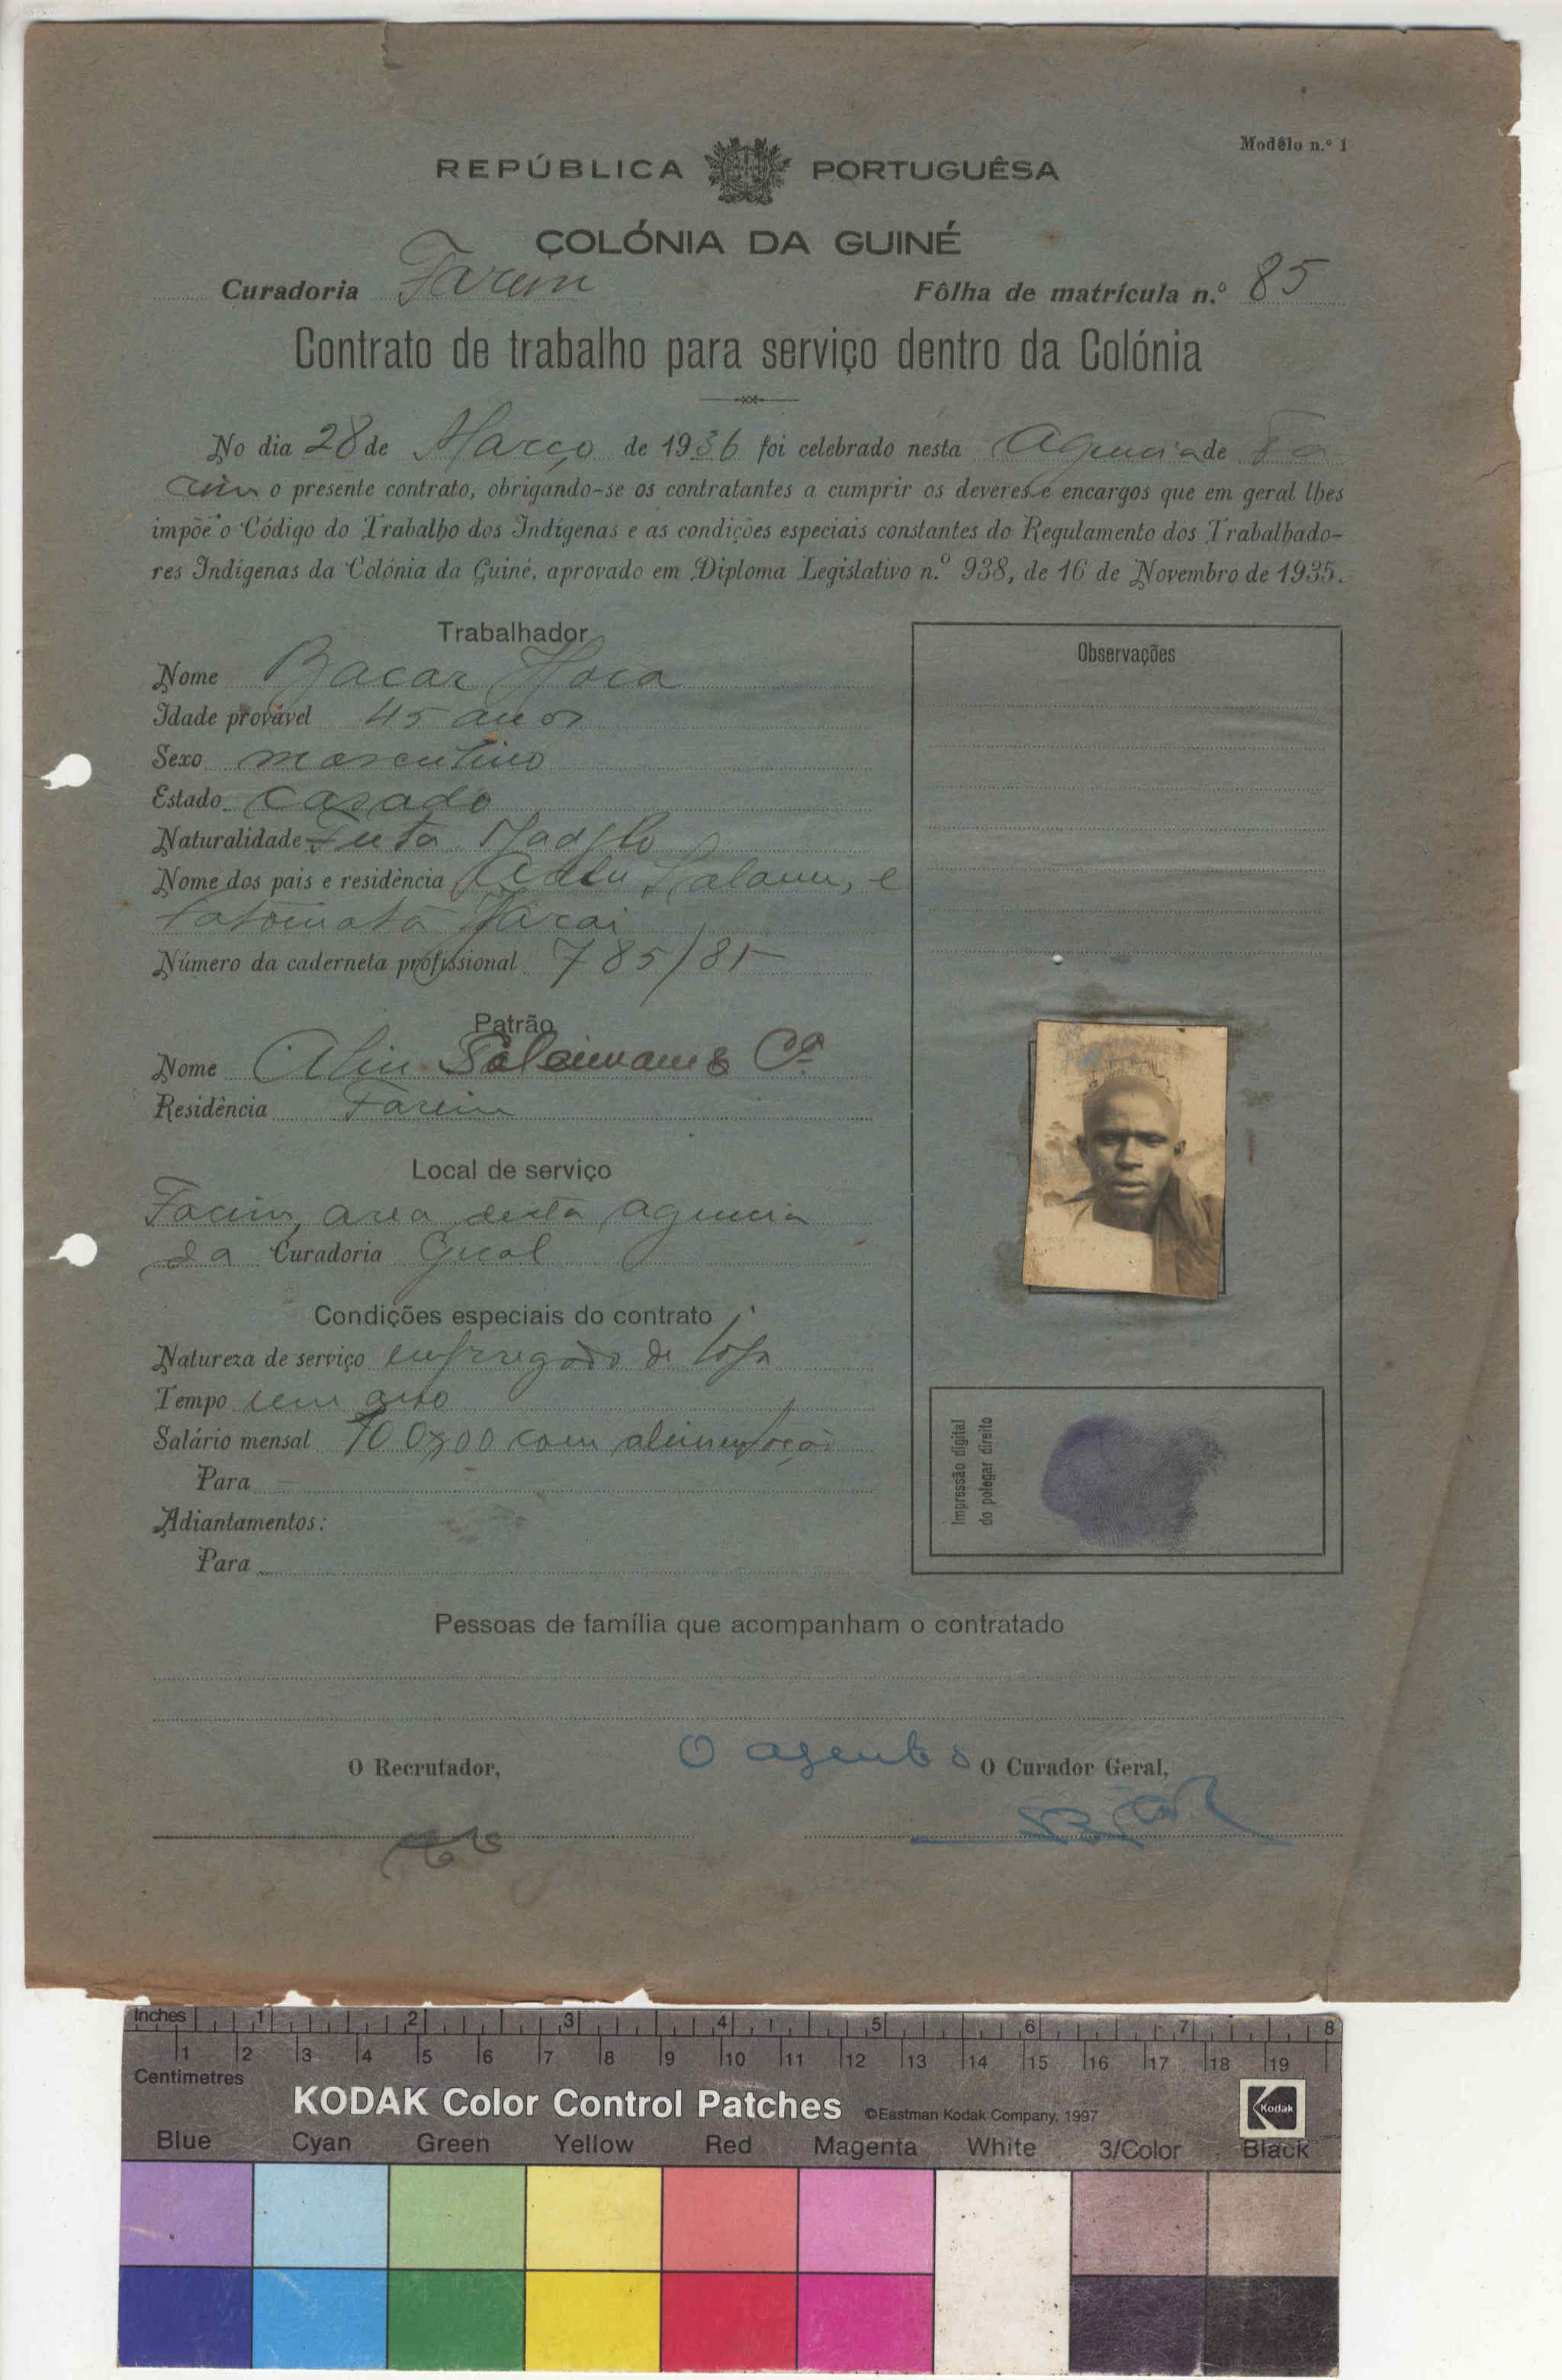 Modêlo n.º 1
REPÚBLICA PORTUGUÊSA
COLÓNIA DA GUINÉ
Curadoria Farim Fôlha de matrícula n.º 85
Contrato de trabalho para serviço dentro da Colónia
No dia 28 de Março de 1936 foi celebrado nesta Agencia de Fa-
rim o presente contrato, obrigando-se os contratantes a cumprir os deveres e encargos que em geral lhes
impõe o Código do Trabalho dos Indígenas e as condições especiais constantes do Regulamento dos Trabalhado-
res Indígenas da Colónia da Guiné, aprovado em Diploma Legislativo n.º 938, de 16 de Novembro de 1935.
Trabalhador
Nome Bacar
Idade provável 45 anos
Sexo masculino
Estado casado
Naturalidade Futa
Nome dos pais e residência
Número da caderneta profissional 785/85
Patrão
Nome Aliu Soleimane & Cª
Residência Farim
Local de serviço
Farim, area desta agencia
da Curadoria Geral
Condições especiais do contrato
Natureza de serviço empregado de loja
Tempo um ano
Salário mensal 100$00 com alimentação
Para
Adiantamentos:
Para
Observações
Impressão digital
do polegar direito
Pessoas de família que acompanham o contratado
O Recrutador,
O agente
O Curador Geral,
Inches 1 2 3 4 5 6 7 8
1 2 3 4 5 6 7 8 9 10 11 12 13 14 15 16 17 18 19
Centimetres
KODAK Color Control Patches ©Eastman Kodak Company, 1997 Kodak
Blue Cyan Green Yellow Red Magenta White 3/Color Black